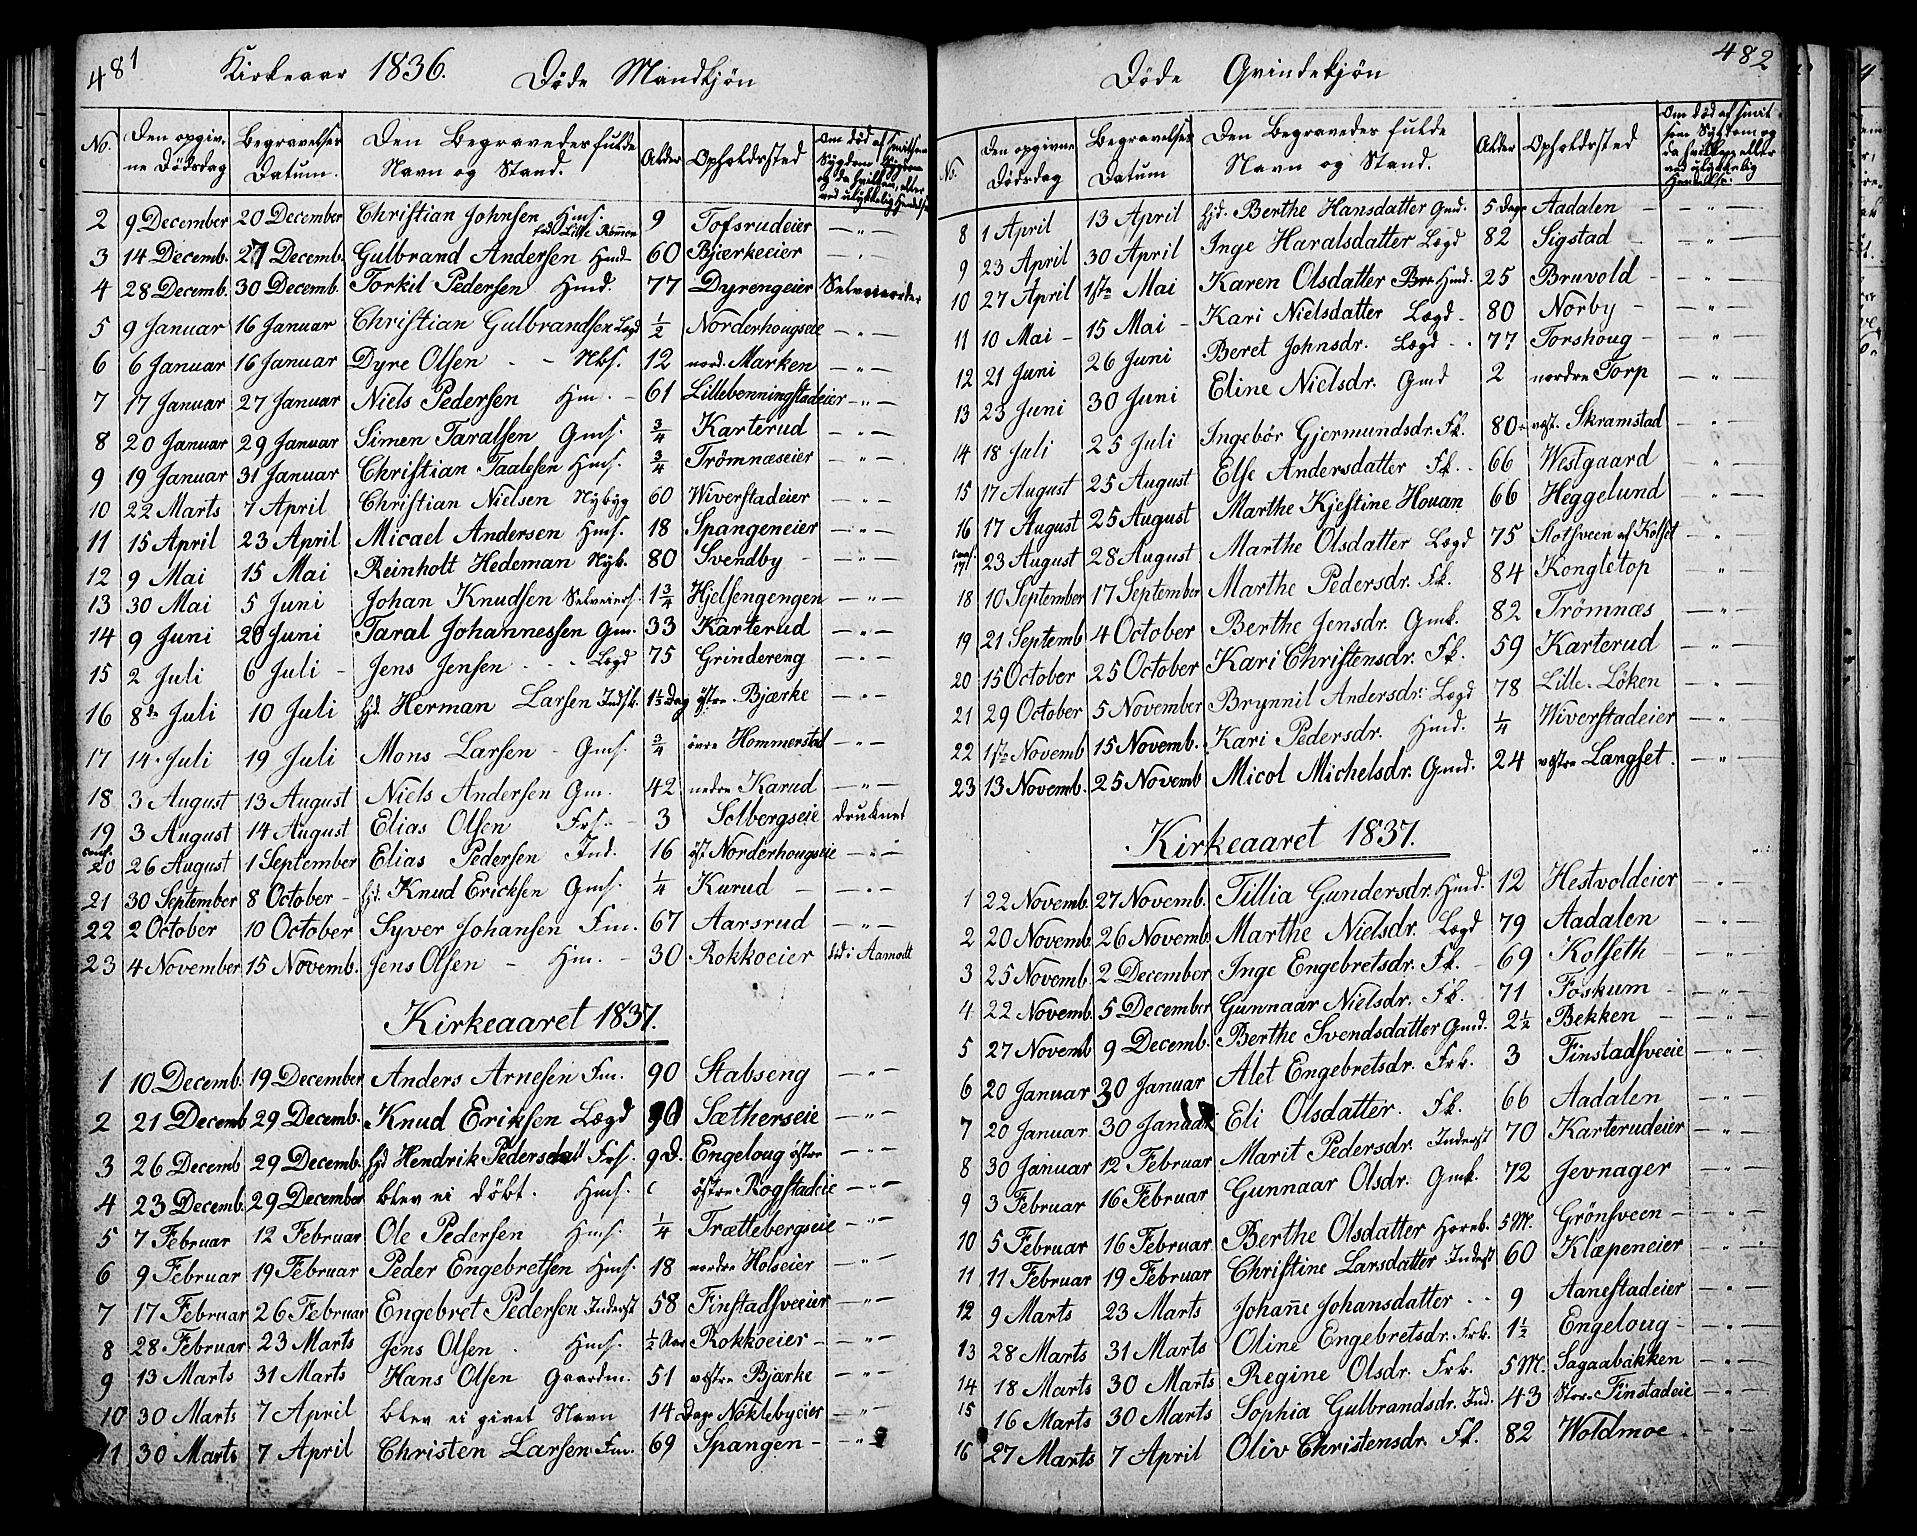 481
Kirkeaar 1836. Døde Mandkjøn
No. Den opgivne Dødsdag Begravelses Datum. Den Begravedes fulde Navn og Stand. Alder Opholdssted Om død af smitsom Sygdom og da hvilken, eller ved ulykkelig Hendelse
2 9 December 20 December Christian Johnsen Hms. 9 Tofsrudeier — " —
3 14 Decemb. 27 Decemb. Gulbrand Andersen Hmd 60 Bjærkeeier — " —
4 28 Decemb. 30 Decemb. Torkil Pedersen Hmd. 77 Dyrengeier Selvmorder
5 9 Januar 16 Januar Christian Gulbrandsen Lægd ½ Norderhougseie — " —
6 6 Januar 16 Januar Dyre Olsen - - Nbs. 12 nord. Marken — " —
7 17 Januar 27 Januar Niels Pedersen Hm. - 61 Lillebenningstadeier — " —
8 20 Januar 29 Januar Simen Taralsen Gms. ¾ Karterud — " —
9 19 Januar 31 Januar Christian Taalesen Hms. ¾ Trømnæseier — " —
10 22 Marts 7 April Christian Nielsen Nybyg 60 Wiverstadeier — " —
11 15 April 23 April Micael Andersen Hms. 18 Spangeneier — " —
12 9 Mai 15 Mai Reinholt Hedeman Nyb. 80 Svendby — " —
13 30 Mai 5 Juni Johan Knudsen Selveiers. 1¾ Hjelsengengen — " —
14 9 Juni 20 Juni Taral Johannessen Gm. 33 Karterud — " —
15 2 Juli 6 Juli - Jens Jensen - - - Lægd 75 Grindereng — " —
16 8de Juli 10 Juli hjd. Herman Larsen Indst. 1½ Dag østre Bjærke — " —
17 14. Juli 19 Juli Mons Larsen - Gms. ¾ øvre Hommerstad — " —
18 3 August 13 August Niels Andersen Gm. 42 nedre Karud — " —
19 3 August 14 August Elias Olsen Frs. - 3 Solbergseie druknet
20 26 August 1 September Elias Pedersen Ind. 16 øst Norderhougseie — " —
21 30 September 8 October - hjd. Knud Ericksen Gms. ¼ Kurud — " —
22 2 October 10 October Syver Johansen Fm. 67 Aarsrud — " —
23 4 November 15 Novemb. Jens Olsen - Hm. - 30 Rokkoeier död i Aamodt
Kirkeaaret 1837.
1 10 Decemb. 19 December Anders Arnesen Fm. 90 Stabseng — " —
2 21 Decemb 29 Decemb. Knud Eriksen Lægd 90 Sætherseie — " —
3 26 Decemb 29 Decemb. hjd Hendrik Peders Frs. 9 d. Engeloug østre — " —
4 23 Decemb. 29 December blev ei döbt. Hms. østre Rogstadeie — " —
5 7 Februar 12 Februar Ole Pedersen Hms. ¼ Trættebergseie — " —
6 9 Februar 19 Februar Peder Engebretsen Hms. 18 nordre Holseier — " —
7 17 Februar 26 Februar Engebret Pedersen Inderst 58 Finstadsveeier — " —
8 28 Februar 23 Marts Jens Olsen . Hms. ½ Aar Rokkoeier — " —
9 13 Marts 31 Marts Hans Olsen Gaardm. 51 vestre Bjærke — " —
10 30 Marts 7 April blev ei givet Navn 14 Dage Nøklebyeier — " —
11 30 Marts 7 April Christen Larsen Fm. 69 Spangen — "
482
Døde Qvindekjøn
No. Den opgivne Dødsdag Begravelses Datum Den Begravedes fulde Navn og Stand. Alder Opholdssted Om død af smitsom Sygdom og da hvilken eller ved ulykkelig Hendelse.
8 1 April 13 April hjd. Berthe Hansdatter Gmd. 5 Dage Aadalen — " —
9 23 April 30 April Inge Haralsdatter Lægd 82 Sigstad — " —
10 27 April 1ste Mai Karen Olsdatter Hmd. 25 Bruvold — " —
11 10 Mai - 15 Mai - Kari Nielsdatter Lægd - 80 Norby — " —
12 21 Juni 26 Juni Beret Johnsdr. Lægd - 77 Torshoug — " —
13 23 Juni 30 Juni Eline Nielsdr. Gmd 2 nordre Torp — " —
14 18 Juli 25 Juli Ingebør Gjermundsdr. Fk. 80 vest. Skramstad — " —
15 17 August 25 August Else Andersdatter Fk. 66 Westgaard — " —
16 17 August 25 August Marthe Kjestine Houan 66 Heggelund — " —
17 23 August 28 August Marthe Olsdatter Lægd 75 Slotsveen af Kolset — " —
18 10 September 17 September Marthe Pedersdr. Fk. 84 Kongletop — " —
19 21 Septemb 4 October Berthe Jensdr. Gmk. 82 Trømnæs — " —
20 15 October 25 October Kari Christensdr. Fk. 59 Karterud — " —
21 29 October 5 November Brynnil Andersdr. Lægd 78 Lille-Löken — " —
22 1ste Novemb 15 Novemb. Kari Pedersdr. Hmd. ¼ Wiverstadeier — " —
23 13 Novemb. 25 Novemb Micol Michelsdr. Gmd. 24 vestre Langset. — " —
Kirkeaaret 1837.
1 22 Novemb. 27 Novemb. Tillia Gundersdr. Hmd. 12 Hestvoldeier — " —
2 20 Novemb. 26 Novemb. Marthe Nielsdr. Lægd 79 Aadalen — " —
3 25 Novemb. 2 December Inge Engebretsdr. Fk. - 69 Kolseth — " —
4 22 Novemb. 5 December Gunnaar Nielsdr. Fk. 71 Foskum — " —
5 27 Novemb 9 Decemb. Berthe Svendsdatter Gmd. 2½ Bekken — " —
6 20 Januar 30 Januar Alet Engebretsdr. Frk. 3 Finstadsveeie — " —
7 20 Januar 30 Januar Eli Olsdatter. Fk. 66 Aadalen — " —
8 30 Januar 12 Februar Marit Pedersdr. Inderst 70 Karterudeier — " —
9 3 Februar 16 Februar Gunnaar Olsdr. Gmk. 72 Jevnager — " —
10 5 Februar 16 Februar Berthe Olsdatter Horeb. 5 M. Grönsveen — " —
11 11 Februar 19 Februar Christine Larsdatter Inderst 60 Klæpeneier — " —
12 9 Marts 23 Marts Johan̄e Johansdatter - - 9 Aanestadeier — " —
13 28 Marts 31 Marts Oline Engebretsdr. Frk. 1½ Engeloug — " —
14 18 Marts 30 Marts Regine Olsdr. Frk. 5 M. Sagaabakken — " —
15 16 Marts 30 Marts Sophia Gulbrandsdr. Ind. 43 Store Finstadeie — " —
16 27 Marts 7 April Oliv Christensdr. Fk. 82 Woldmoe — " —